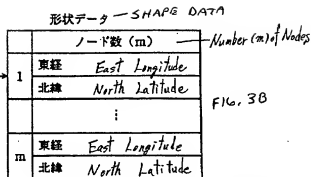 形状データ — SHAPE DATA
ノード数 (m) Number (m) of Nodes
1 東経 East Longitude
北緯 North Latitude
⋮
FIG. 3B
m 東経 East Longitude
北緯 North Latitude